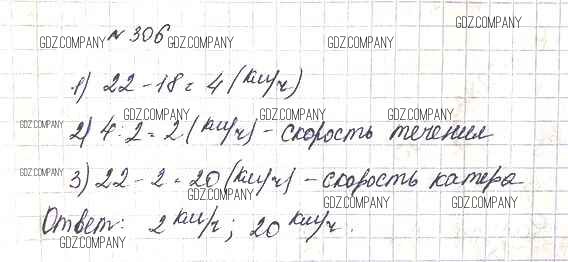 № 306
GDZ.COMPANY GDZ.COMPANY GDZ.COMPANY GDZ.COMPANY
1) 22 - 18 = 4 (км/ч)
GDZ.COMPANY GDZ.COMPANY GDZ.COMPANY GDZ.COMPANY
2) 4 : 2 = 2 (км/ч) - скорость течения
GDZ.COMPANY
3) 22 - 2 = 20 (км/ч) - скорость катера
GDZ.COMPANY GDZ.COMPANY GDZ.COMPANY
Ответ: 2 км/ч; 20 км/ч.
GDZ.COMPANY